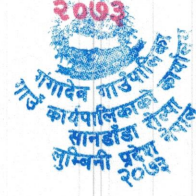 २०७३
गंगादेव गाउँपालिका
गाउँ कार्यपालिकाको कार्यालय
सानडाँडा रोल्पा
लुम्बिनी प्रदेश नेपाल
२०७३